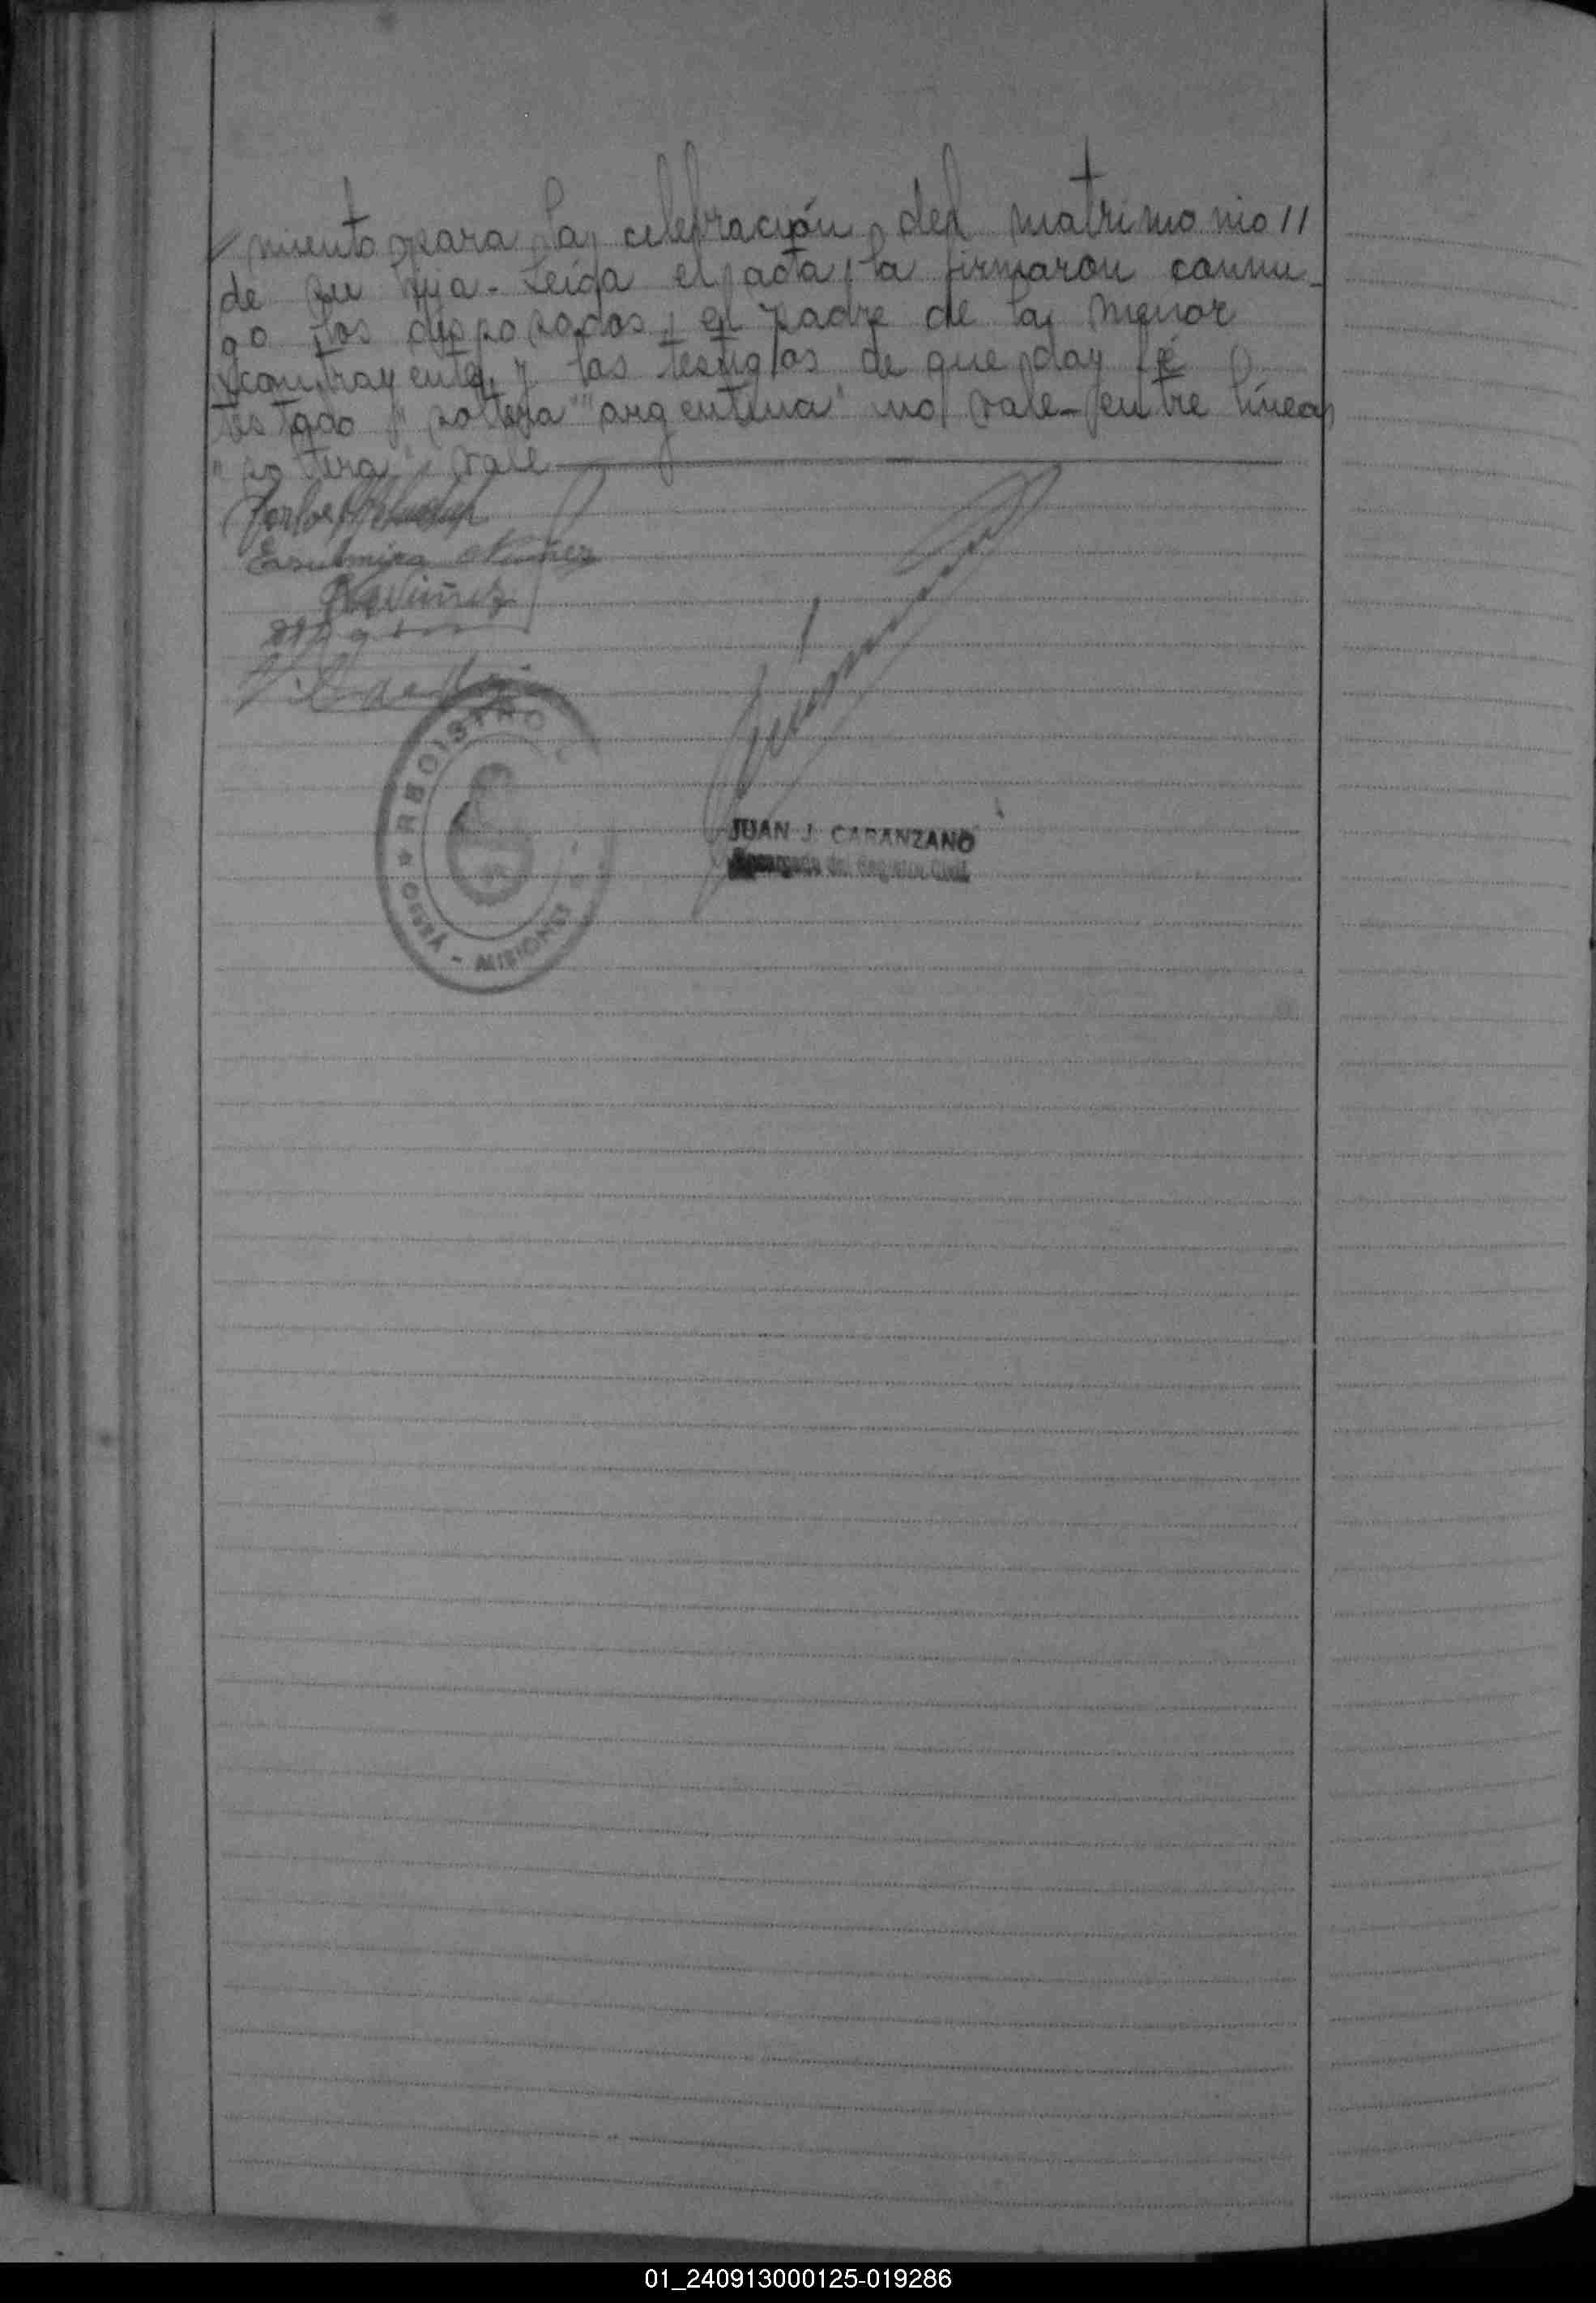 miento para la celebración del matrimonio //
de su hija - Leída el acta, la firmaron conmi-
go los desposados, el padre de la menor
contrayente, y los testigos de que doy fé
Testado " soltera" "argentina" no vale - entre líneas
"soltera" vale
Nuñez
Nuñez
REGISTRO
OBERÁ - MISIONES
JUAN J. CARANZANO
Encargado del Registro Civil
01_240913000125-019286